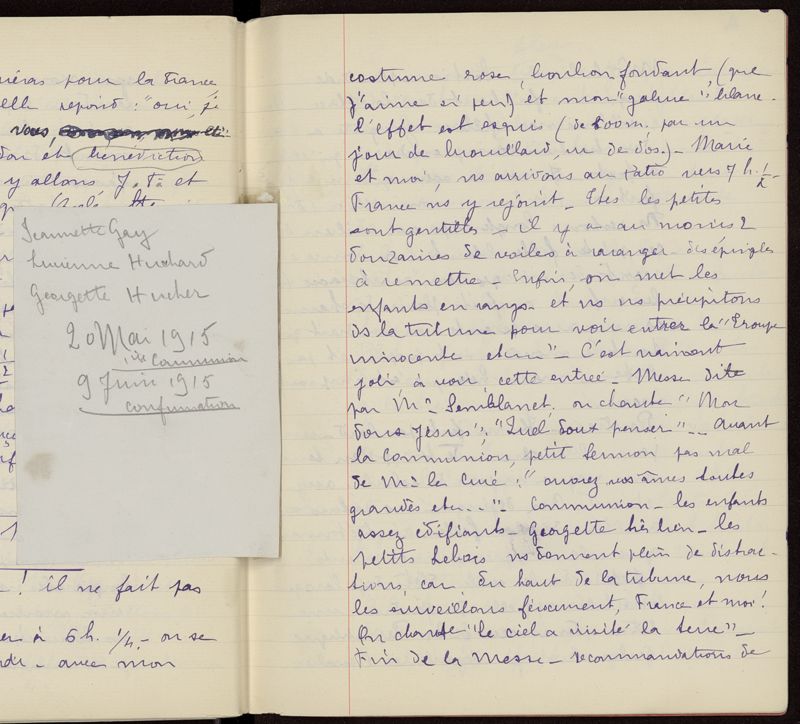 pour la France
elle répond : "oui, je
vous,
don et bénédiction
y allons
Jeannette Gay
Lucienne Huchard
Georgette Hucher
20 Mai 1915
1ère Communion
9 Juin 1915
confirmation
! il ne fait pas
à 6h. 1/4. - on se
avec mon
costume rose, bonbon fondant, (que
j'aime si peu) et mon "galure" blanc.
l'effet est exquis (de 800m, par un
jour de brouillard, vu de dos.) - Marie
et moi, ns arrivons au Patio vers 7h. 1/2 -
France ns y rejoint - Ttes les petites
sont gentilles - il y a au moins 2
douzaines de voiles à arranger - des épingles
à remettre - Enfin, on met les
enfants en rangs - et ns ns précipitons
ds la tribune pour voir entrer la "Troupe
innocente etc..." - C'est vraiment
joli, à voir, cette entrée - Messe dite
par Mr Semblanet. on chante "Mon
doux Jésus", "Quel doux penser" - - Avant
la Communion, petit sermon pas mal
de Mr le Curé : " ouvrez vos âmes toutes
grandes etc..." - Communion - les enfants
assez édifiants - Georgette très bien - les
petits Lebois ns donnent plein de distrac-
tions, car du haut de la tribune, nous
les surveillons férocement, France et moi !
On chante "le ciel a visité la terre" -
Fin de la Messe - recommandations de